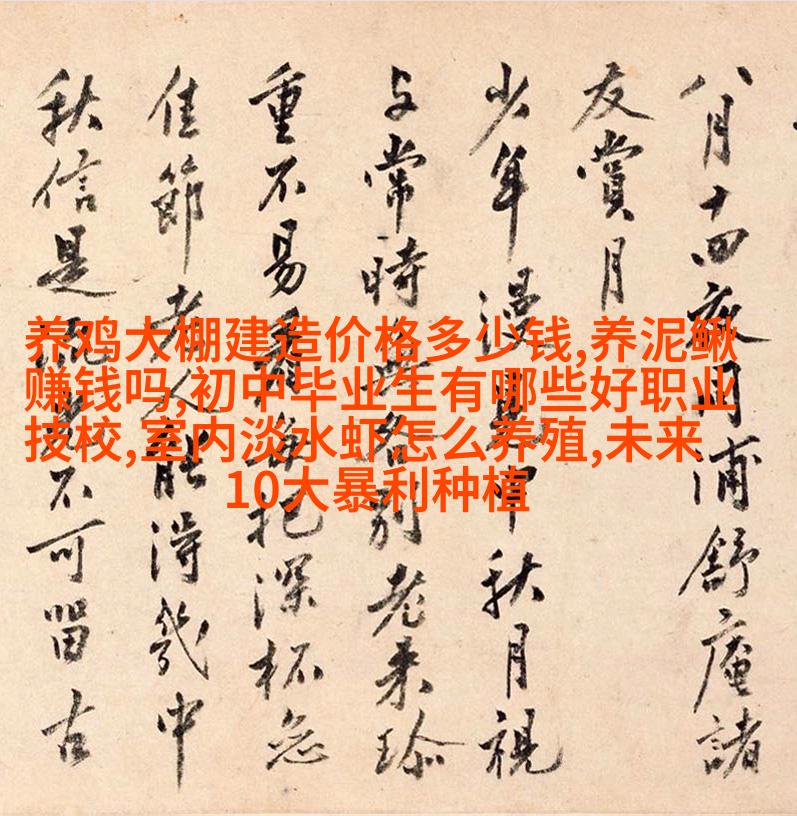 八月十四夜同浦舒庵諸
友賞月
少年漫見中秋月視
与常時無各別老来珎
重不易看每把深杯
佳節老人能淂幾中
秋信是不可留古
养鸡大棚建造价格多少钱,养泥鳅
赚钱吗,初中毕业生有哪些好职业
技校,室内淡水虾怎么养殖,未来
10大暴利种植